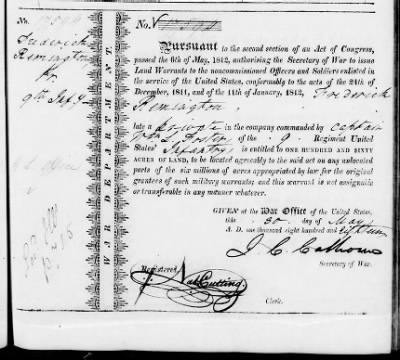 No.
Frederick
Remington
9th Inf.
No.
Pursuant to the second section of an Act of Congress,
passed the 6th of May, 1812, authorising the Secretary of War to issue
Land Warrants to the noncommissioned Officers and Soldiers enlisted in
the service of the United States, conformably to the acts of the 24th of
December, 1811, and of the 11th of January, 1812, Frederick
Remington
late a private in the company commanded by Captain
Foster of the 9 Regiment United
States' Infantry is entitled to ONE HUNDRED AND SIXTY
ACRES OF LAND, to be located agreeably to the said act on any unlocated
parts of the six millions of acres appropriated by law for the original
grantees of such military warrants; and this warrant is not assignable
or transferable in any manner whatever.
GIVEN at the War Office of the United States,
this 30 day of May
A. D. one thousand eight hundred and eighteen
J. C. Calhoun
Secretary of War.
Registered,
Nat Cutting
Clerk.
WAR DEPARTMENT.